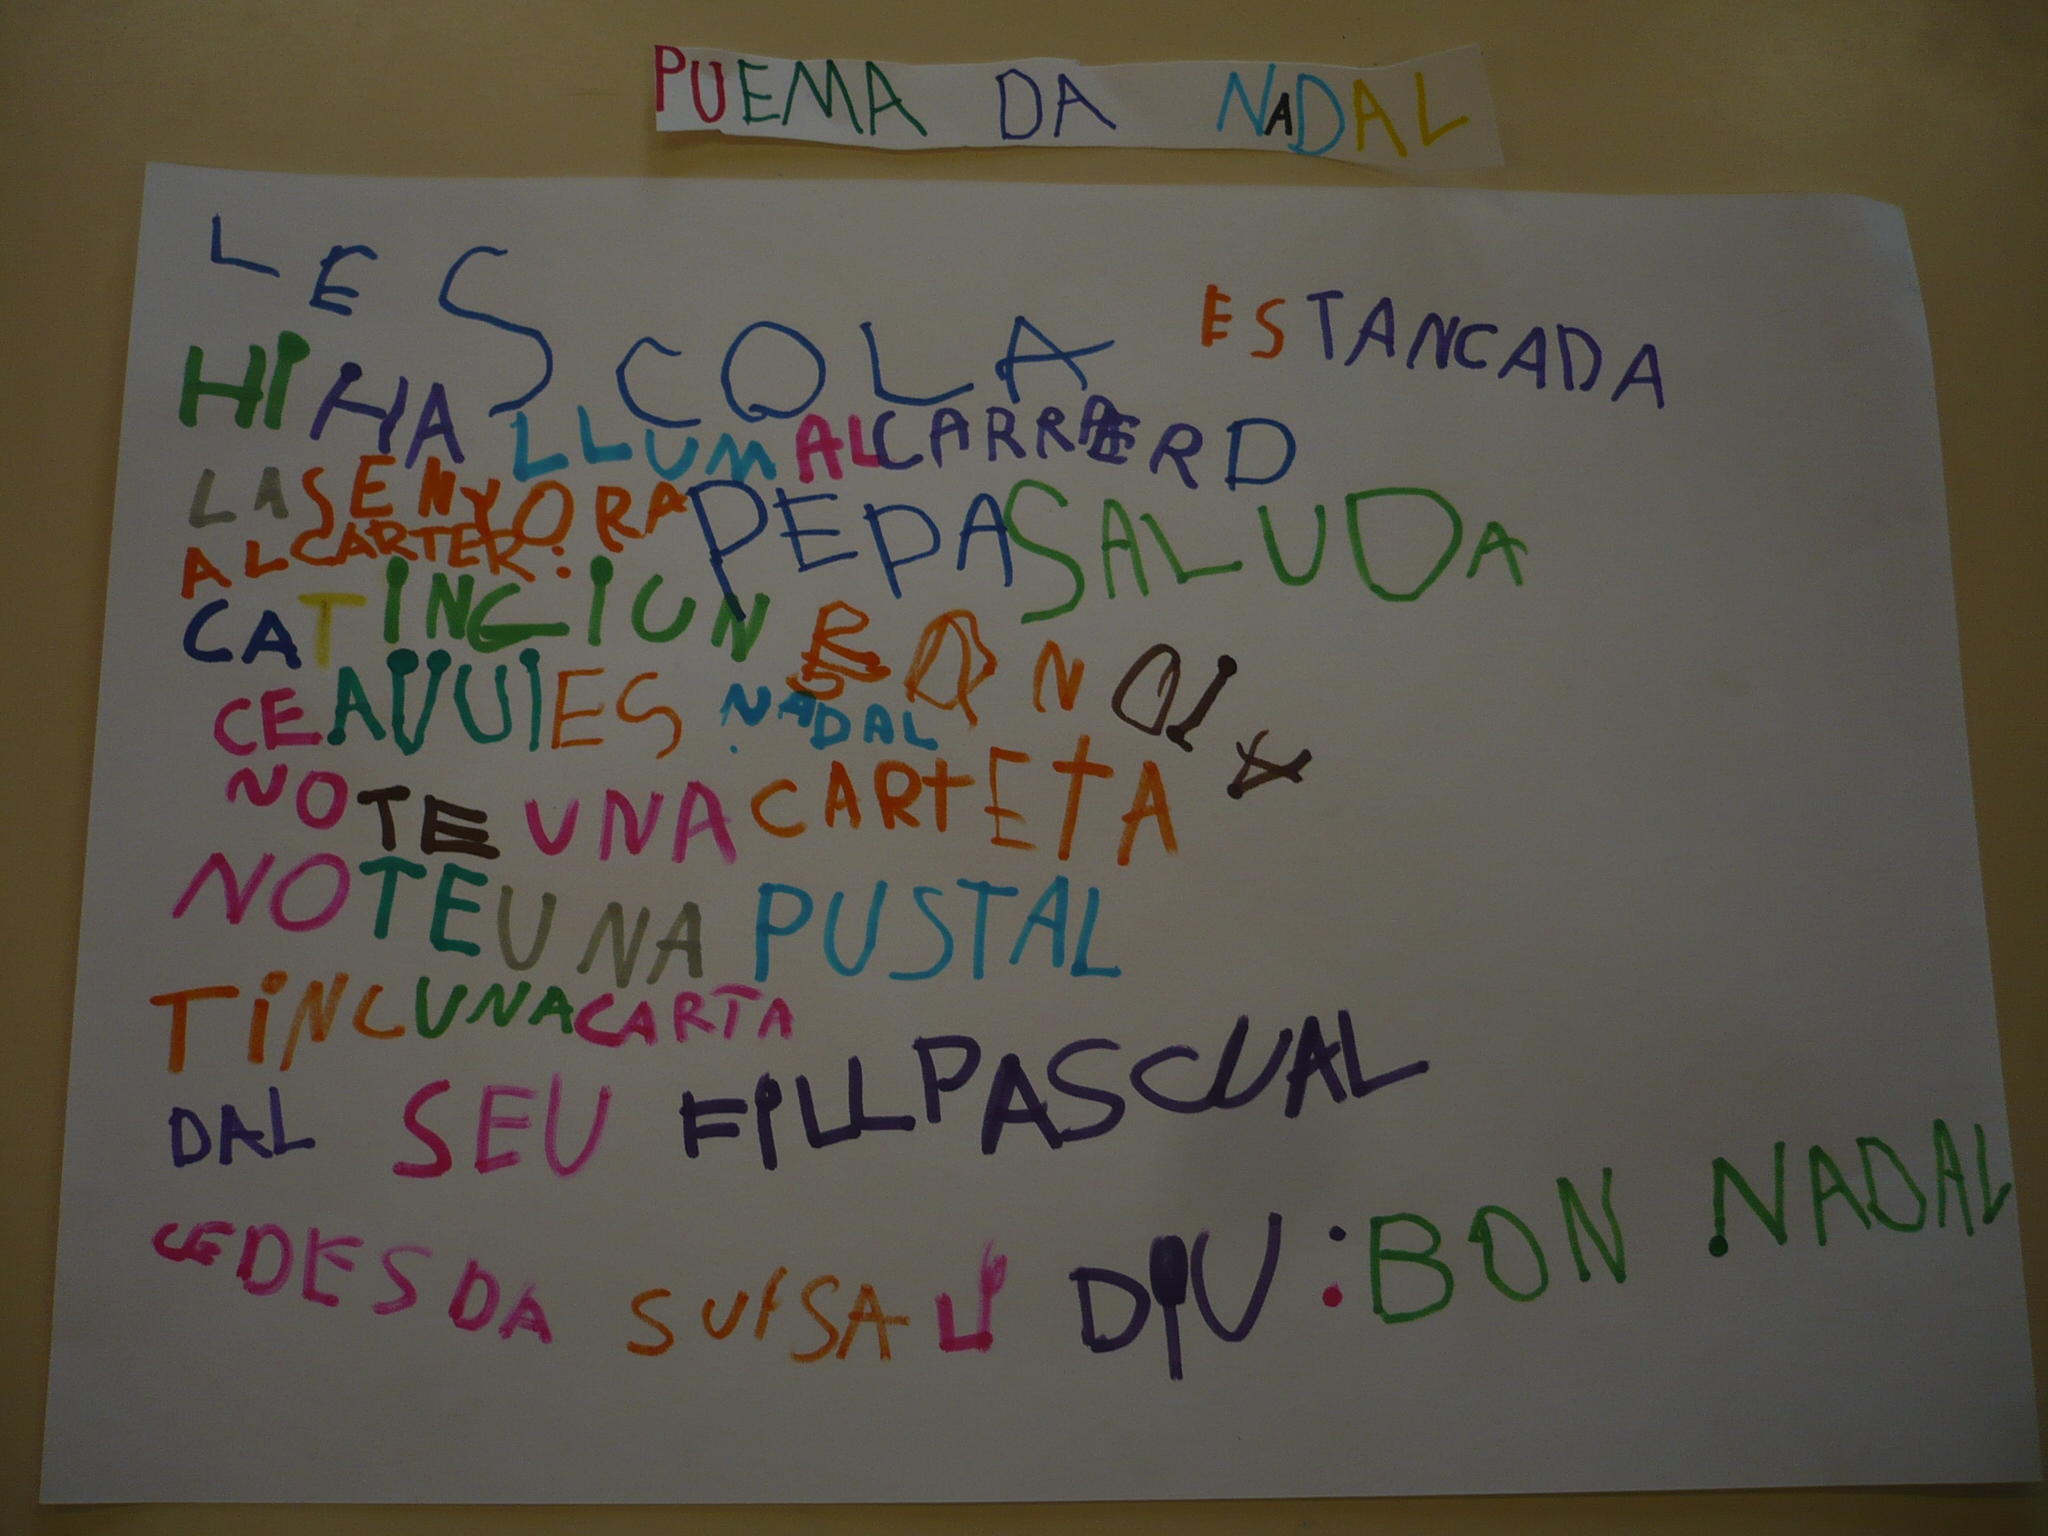 PUEMA DA NADAL
LESCOLA ESTANCADA
HI HA LLUM AL CARRERD
LA SENYORA PEPA SALUDA
AL CARTER:
CATINGIUN BON DIA
CE AVUI ES NADAL.
NO TE UNA CARTETA
NO TE UNA PUSTAL
TINC UNA CARTA
DAL SEU FILL PASCUAL
CE DESDA SUISA LI DIU: BON NADAL